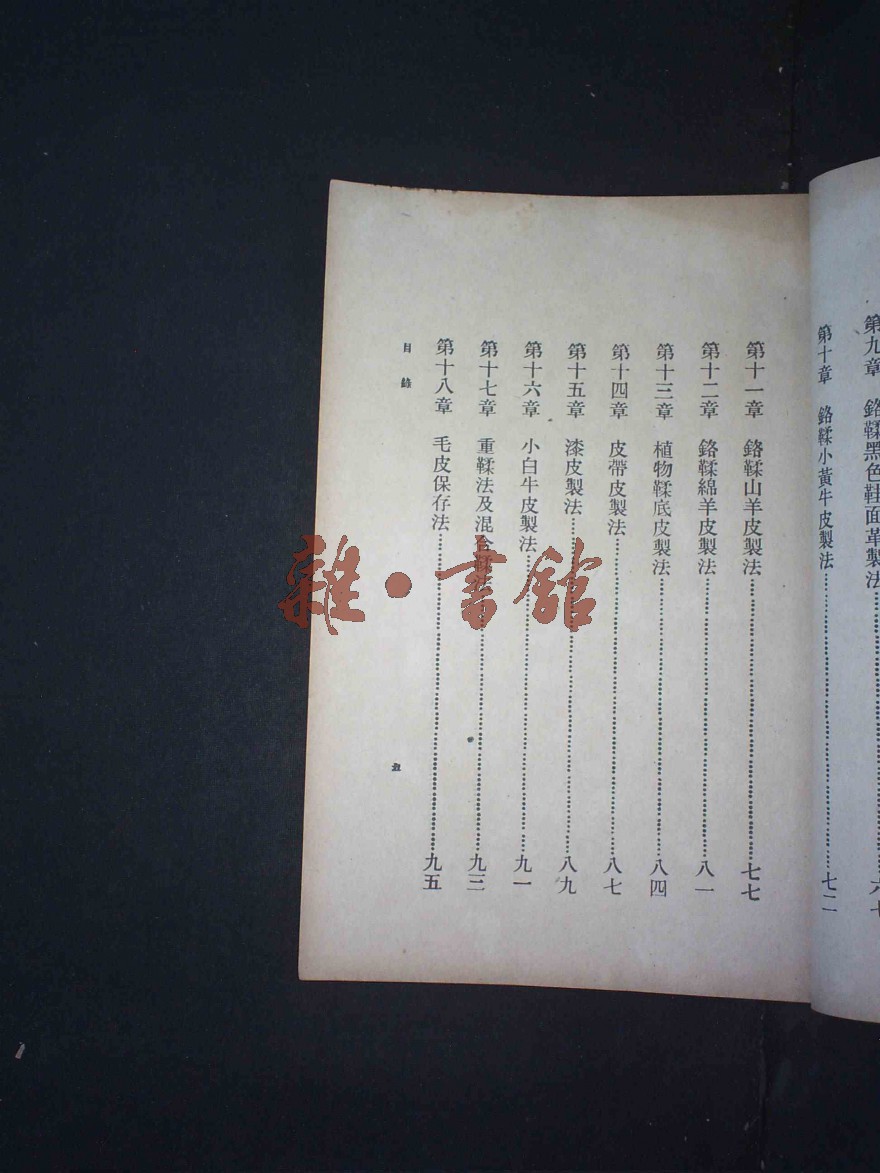 第九章　鉻鞣黑色鞋面革製法……六七
第十章　鉻鞣小黃牛皮製法……七二
第十一章　鉻鞣山羊皮製法……七七
第十二章　鉻鞣綿羊皮製法……八一
第十三章　植物鞣底皮製法……八四
第十四章　皮帶皮製法……八七
第十五章　漆皮製法……八九
第十六章　小白牛皮製法……九一
第十七章　重鞣法及混合鞣法……九三
第十八章　毛皮保存法……九五
目錄
五
雜·書館